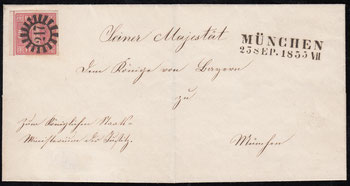 217
Seiner Majestät
MÜNCHEN
23 SEP. 1855 VII
Dem Könige von Bayern
zu
Zum Königlichen Staats-
Ministerium der Justitz.
München